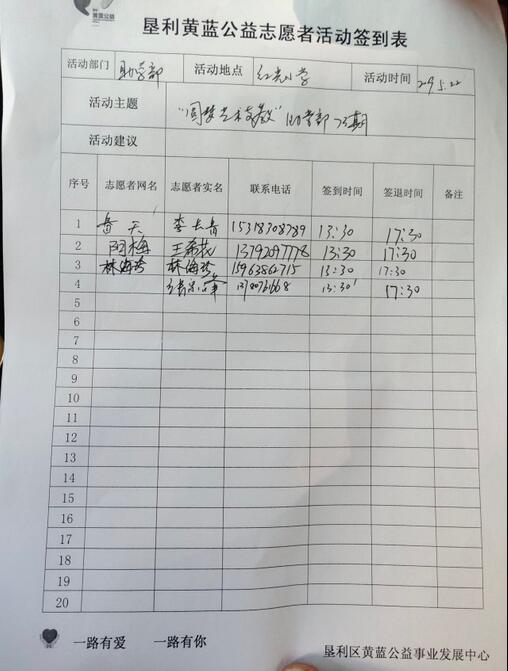 黄蓝公益
垦利黄蓝公益志愿者活动签到表
活动部门 助学部 活动地点 红光小学 活动时间
活动主题 "圆梦艺术支教" 助学部 期
活动建议
序号 志愿者网名 志愿者实名 联系电话 签到时间 签退时间 备注
1 李长青 15318308789 13:30 17:30
2 阿梅 王希花 13792097778 13:30 17:30
3 林海芳 林海芳 15963862715 13:30 17:30
4 13:30 17:30
5
6
7
8
9
10
11
12
13
14
15
16
17
18
19
20
一路有爱 一路有你
垦利区黄蓝公益事业发展中心